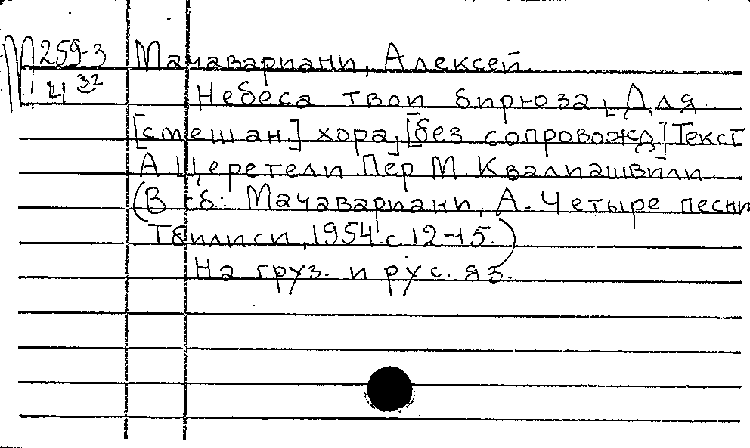 М259-3 Мачавариани, Алексей.
4 32 Небеса твои бирюза, Для
[смешан.] хора, [без сопровожд.] Текст
А Церетели Пер М Квалиашвили
(В сб: Мачавариани, А. Четыре песни
Тбилиси, 1954 с 12-15.)
На груз. и рус. яз.